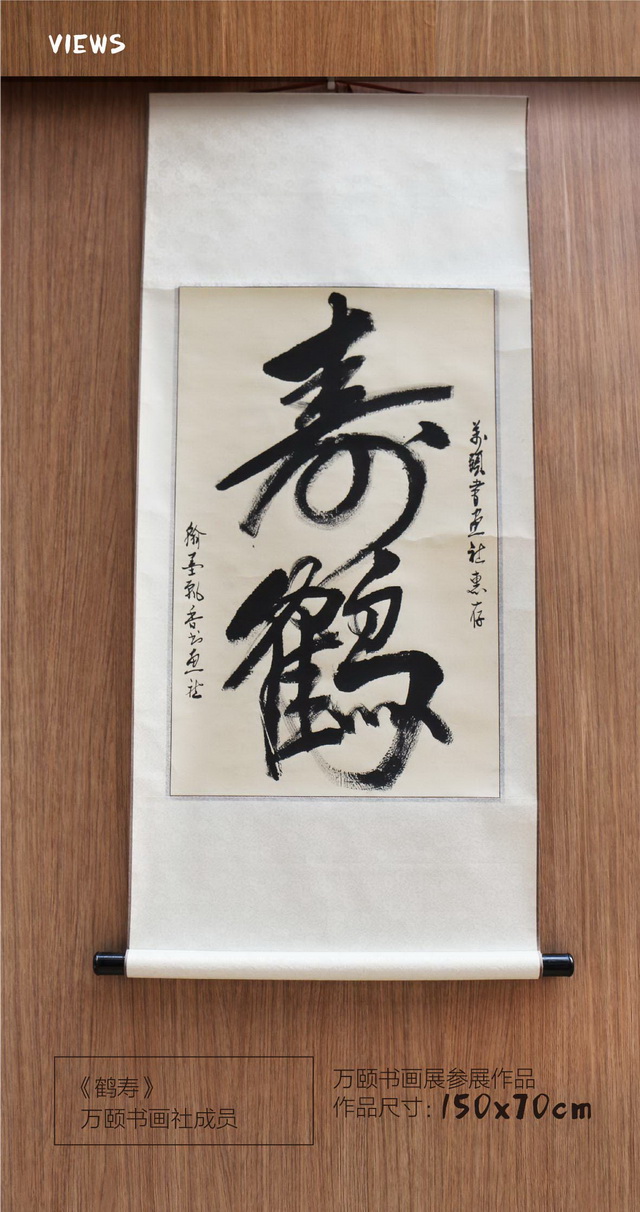 VIEWS
寿
鹤
萬頤書画社惠存
翰墨飘香书画社
《鹤寿》
万颐书画社成员
万颐书画展参展作品
作品尺寸：150x70cm